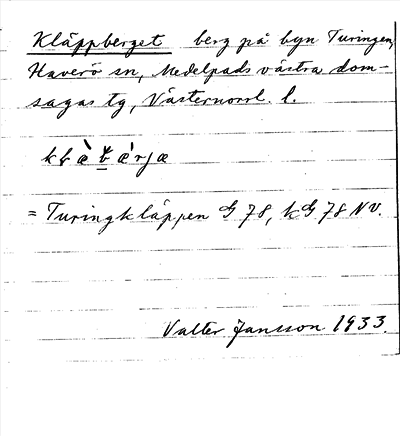 Kläppberget berg på byn Turingen,
Haverö sn, Medelpads västra dom-
sagas tg, Västernorrl. l.
= Turingkläppen G 78, kG 78 NV.
Valter Jansson 1933.